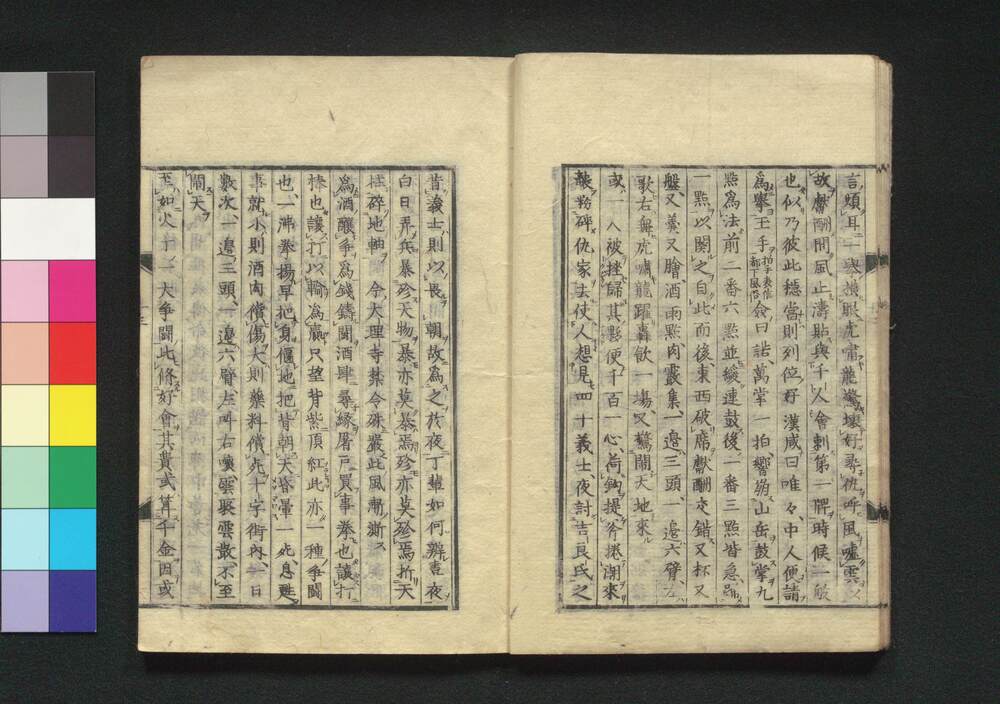 言頰耳一誤横眼虎嘯龍驚壞好尋仇呼風嘘雲
故獻酬間風止濤貼與千人會刺第一牌時候一般
也似乃彼此穩當則列位好漢咸曰唯々中人便請
爲擧玉手僉曰諾萬掌一拍響崩山岳鼓掌九
點爲法前二番六點並緩連鼓後一番三點皆急
一點以関之自此而後東西破席獻酬交錯又杯又
盤又羹又膾酒雨點肉霰集一邊三頭一邊六臂左
歌右舞虎嘯龍躍轟飲一塲又驚鬧天地來
或一人被挫歸其黟便千百一心荷鉤提斧捲潮來
粉碎仇家去使人想見四十義士夜討吉良氏之
昔義士則以長朝故爲之於夜丁輩如何辨晝夜
白日弄兵暴殄天物暴亦莫暴焉殄亦莫殄焉折天
柱碎地軸今大理寺禁令殊嚴此風漸澌
爲酒釀爭爲錢鑄閙酒肆尋緣屠戸買事拳也讓打
捧也讓打以輸爲贏只望背紫頂紅此亦一種爭鬪
也一沸拳揚早把身偃地把背朝天昏暈一死息甦
事就小則酒肉償傷大則藥料償死十字街内一日
數次一邊三頭一邊六臂左叫右嚷雲聚雲散不至
鬧天
至如火干一大爭鬪此條好會其費貳算千金因或